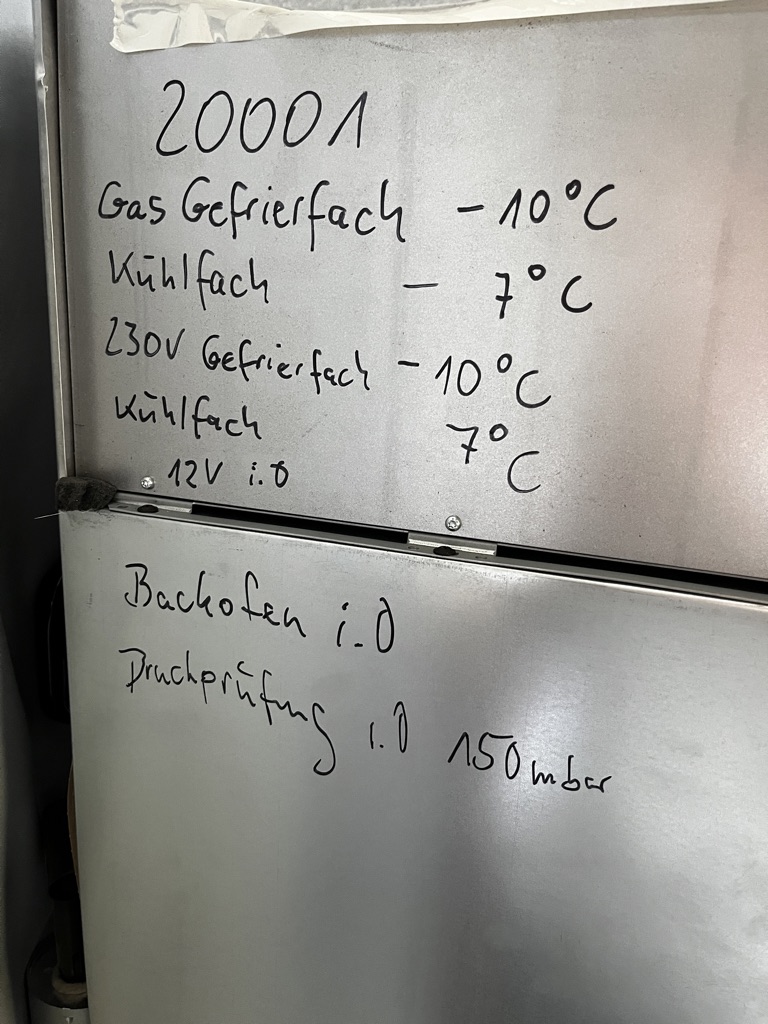 20001
Gas Gefrierfach - 10°C
Kühlfach - 7°C
230V Gefrierfach - 10°C
Kühlfach 7°C
12V i.O
Backofen i.O
Druckprüfung i.O 150mbar